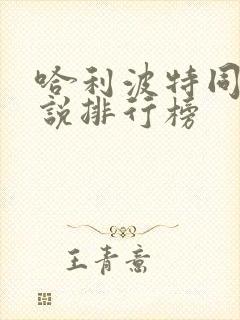 哈利波特同
說排行榜
王青意